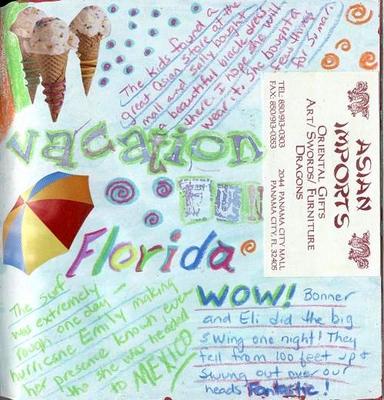 The kids found a
great Asian store at the
mall and Sally bought a
beautiful black dress
there. I hope she will
wear it. She bought a
few things
for S. Mar.
vacation
FUN
Florida
ASIAN
IMPORTS
ORIENTAL GIFTS
ART/ SWORDS/ FURNITURE
DRAGONS
TEL: 850/913-0303
FAX: 850/913-0353
2044 PANAMA CITY MALL
PANAMA CITY, FL 32405
The surf
was extremely
rough one day -
hurricane Emily making
her presence known even
tho she was headed
to MEXICO
WOW! Bonner
and Eli did the big
swing one night! They
fell from 100 feet up &
swung out over our
heads Fantastic!